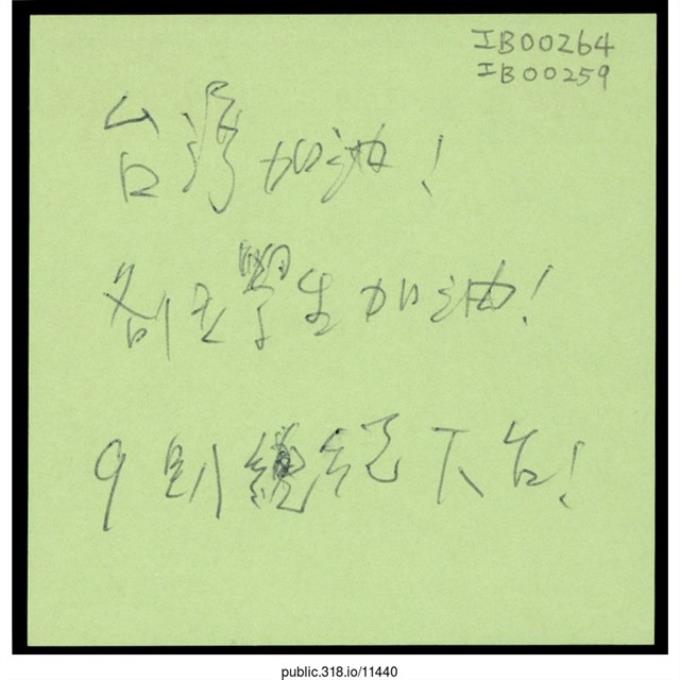 IB00264
IB00259
台灣加油!
各位學生加油!
9趴總統下台!
public.318.io/11440